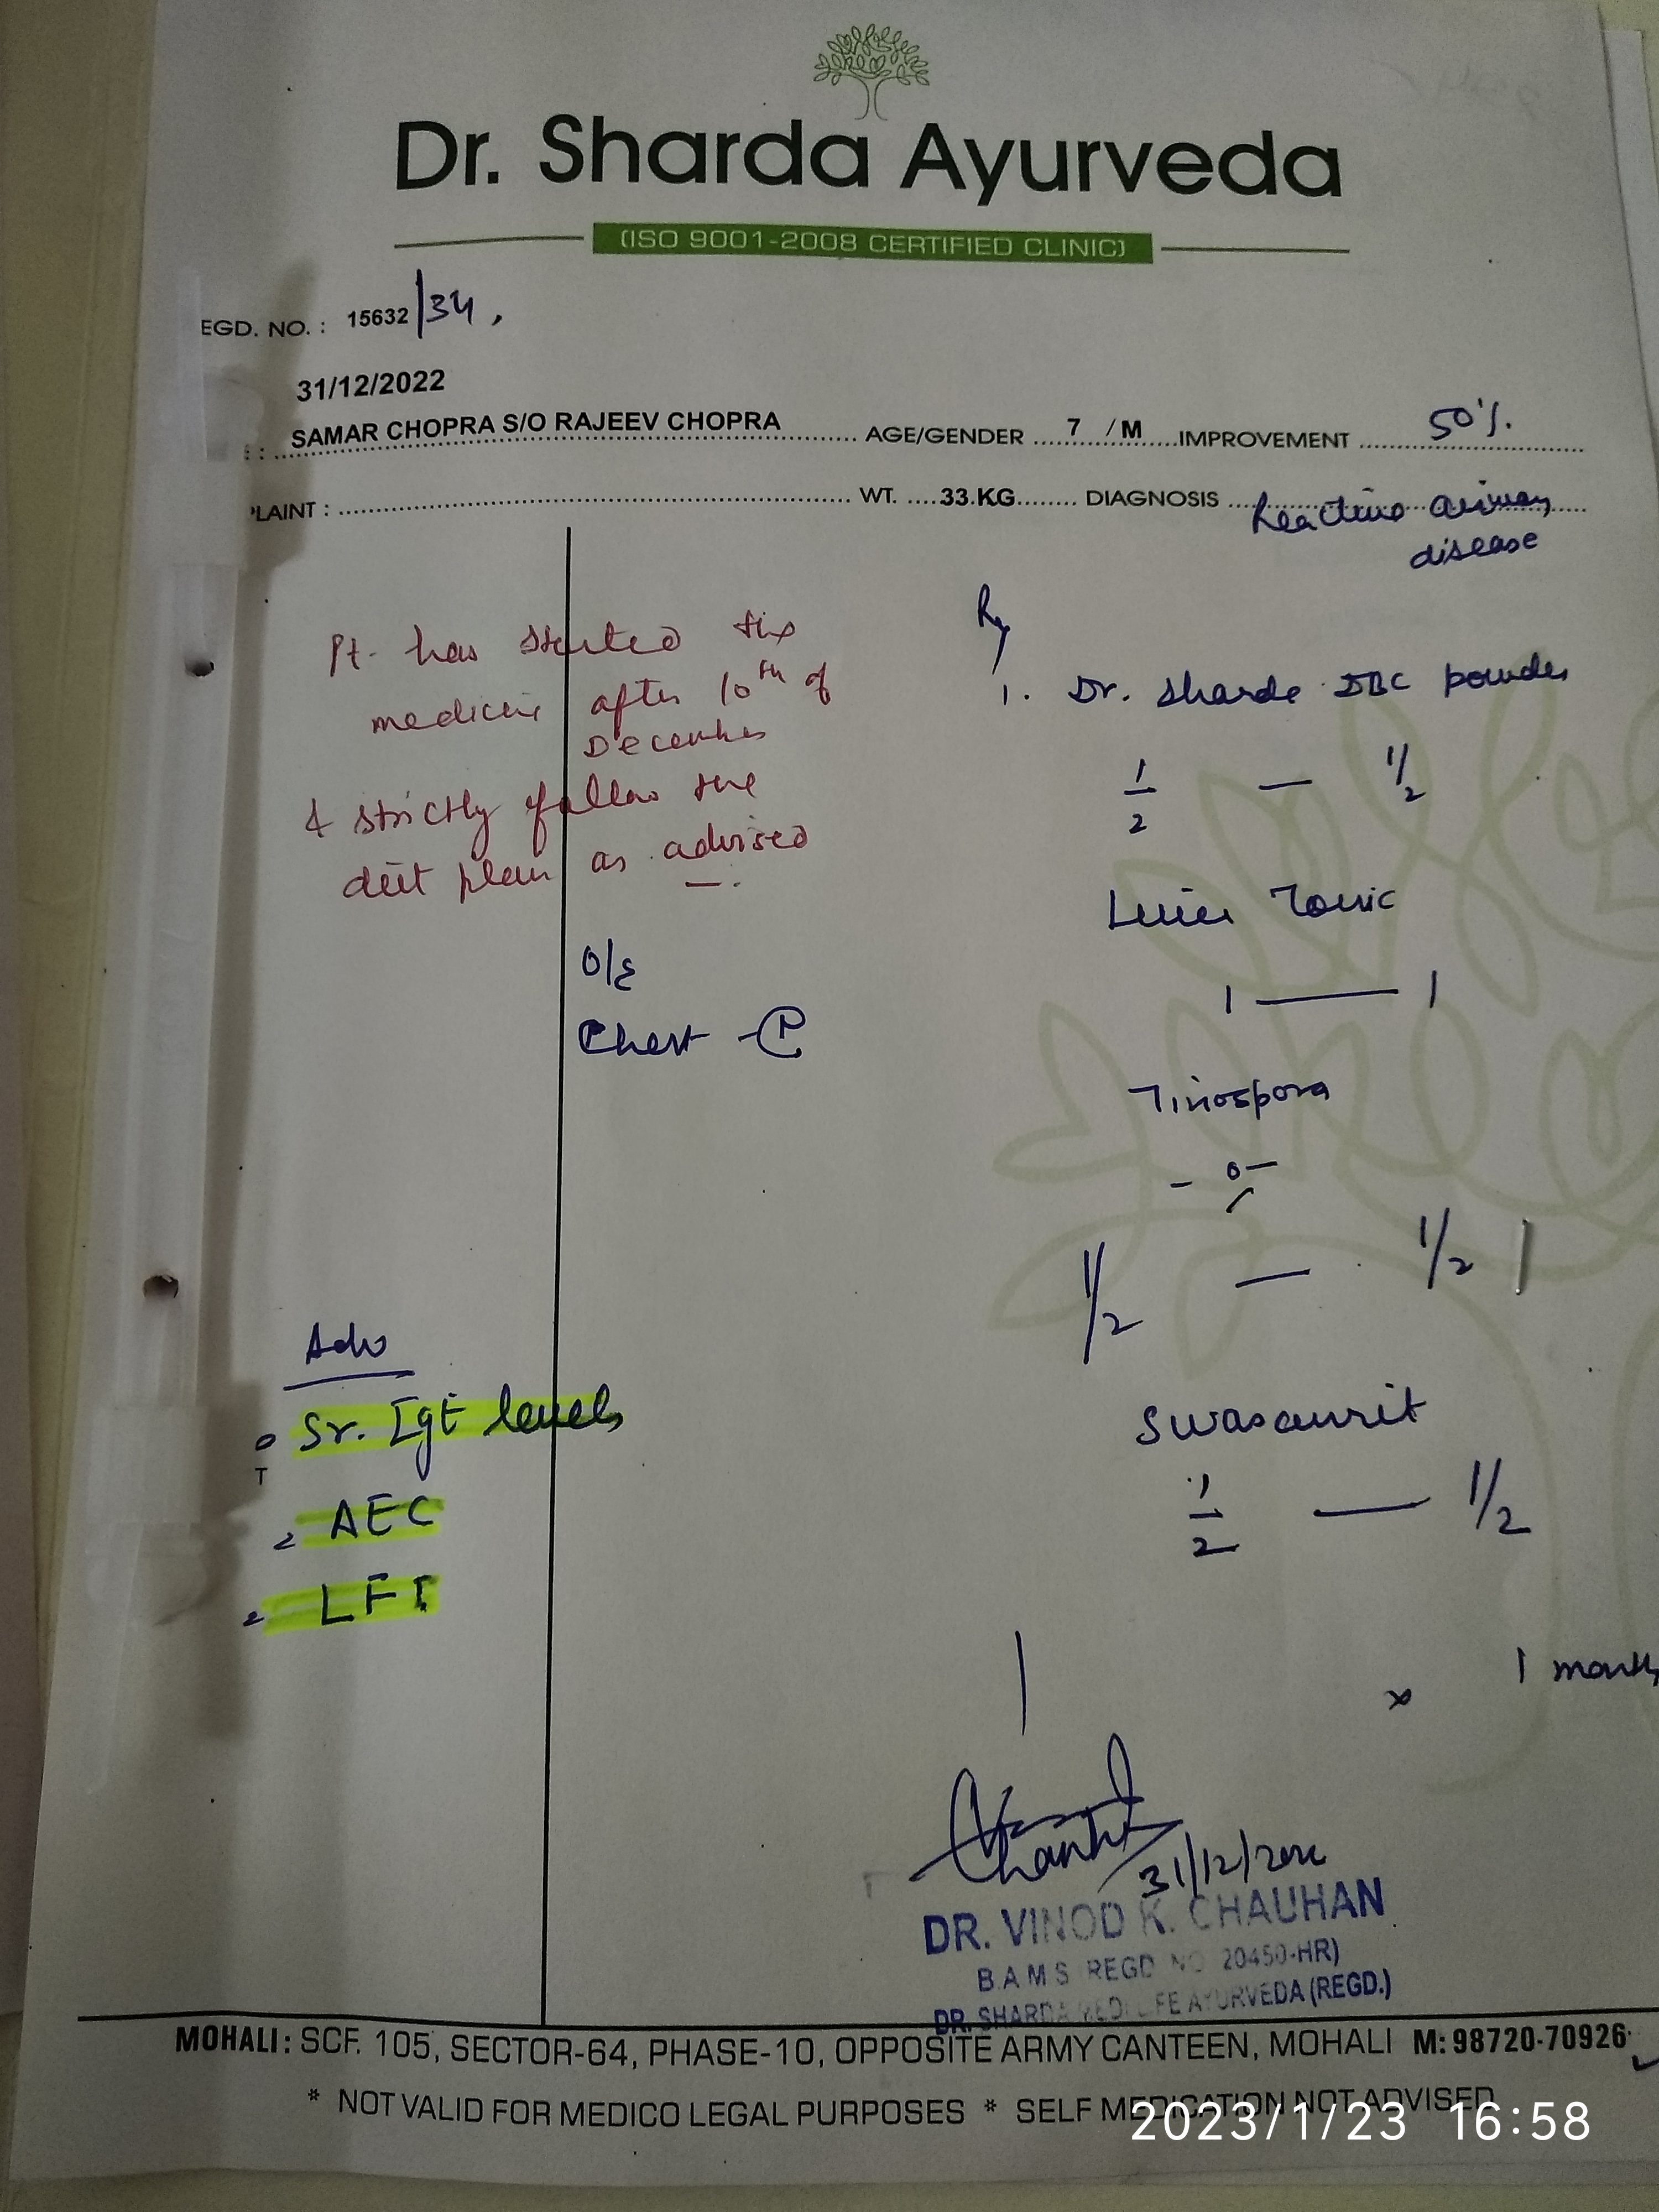 Dr. Sharda Ayurveda
(ISO 9001-2008 CERTIFIED CLINIC)
EGD. NO. : 15632/34,
31/12/2022
: SAMAR CHOPRA S/O RAJEEV CHOPRA AGE/GENDER 7 / M IMPROVEMENT 50%.
PLAINT : WT. 33.KG DIAGNOSIS Reactive airway
disease
Pt. has started the
medicine after 10th of
December
& strictly follow the
diet plan as advised
O/E
Chest -
Adv
Sr. IgE levels
AEC
LFT
Rx
1. Dr. Sharda powder
1/2 — 1/2
Liver Tonic
1 — 1
Tinospora
- 0 -
1/2 — 1/2
Swasamrit
1/2 — 1/2
x 1 month
31/12/2022
DR. VINOD K. CHAUHAN
B.A.M.S REGD NO 20450-HR)
DR. SHARDA AYURVEDA (REGD.)
MOHALI: SCF. 105, SECTOR-64, PHASE-10, OPPOSITE ARMY CANTEEN, MOHALI M: 98720-70926
* NOT VALID FOR MEDICO LEGAL PURPOSES * SELF MEDICATION NOT ADVISED
2023/1/23 16:58